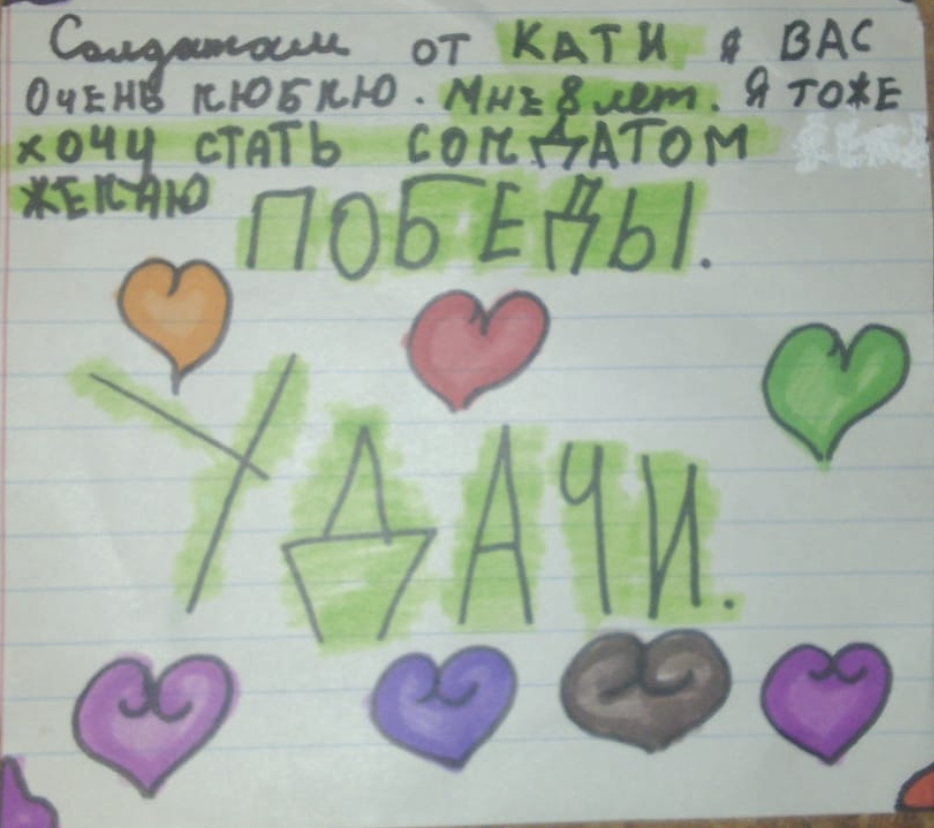 Солдатам от КАТИ Я ВАС
ОЧЕНЬ ЛЮБЛЮ. Мне 8 лет. Я ТОЖЕ
ХОЧУ СТАТЬ СОЛДАТОМ
ЖЕЛАЮ
ПОБЕДЫ.
УДАЧИ.